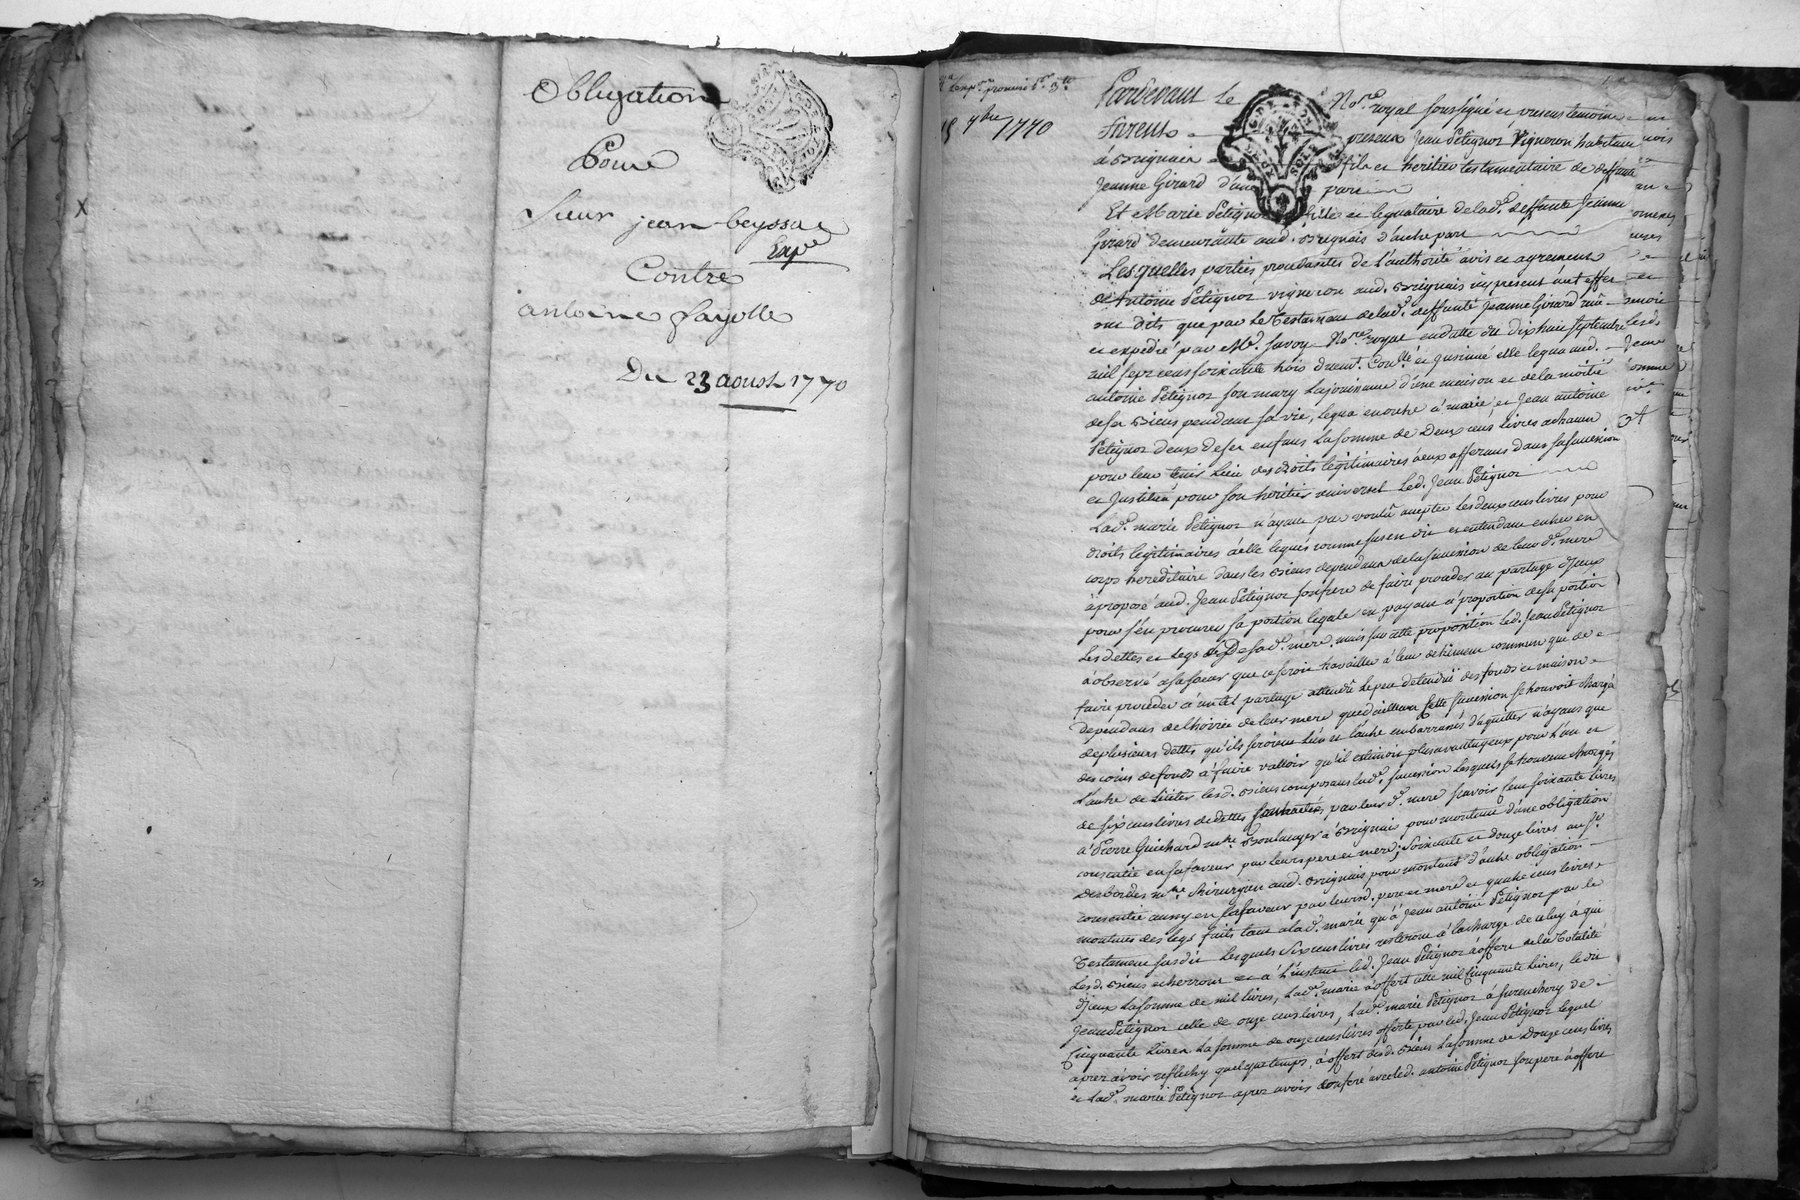 Obligation
Pour
Sieur jean beyssac
Exp.e
Contre
antoine fayolle
Du 23 aoust 1770
15 7bre 1770
Pardevant Le No.re royal soussigné et presens temoins
furent presens Jean Petignor Vigneron habitant
à Brignais fils et heritier testamentaire de deffunte
Jeanne Girard d'une part
Et Marie Petignor fille et legataire de lad.e deffunte Jeanne
Girard demeurante aud. Brignais d'autre part
Lesquelles parties procedantes de l'authorité avis et agrement
de Antoine Petignor vigneron aud. Brignais icy present à cet effet
ont dits que par le Testament de lad.e deffunte Jeanne Girard
et expedié par Me. Savoy No.re royal en datte du dixhuit septembre
mil sept cens soixante trois duement Con.lé et insinué elle legua aud.
antoine Petignor son mary La jouissance d'une maison et de la moitié
de ses Biens pendant sa vie, legua en outre à marie et Jean antoine
Petignor deux de ses enfans La somme de Deux cens livres a chacun
pour leur tenir Lieu des droits legitimaires a eux afferans dans sa succession
et Justitua pour son heritier universel Led. Jean Petignor
Lad.e marie Petignor n'ayant pas voulu accepter les deux cens livres pour
droits legitimaires à elle legués comme sus en dit et entendant entrer en
corps hereditaire dans les Biens dependans de la succession de leur d.e mere
à proposé aud. Jean Petignor son frere de faire proceder au partage d'Jceux
pour s'en procurer sa portion legale en payant à proportion de sa portion
Les dettes et Legs de sad.e mere, mais sur cette proposition led. Jean Petignor
à observé a sa soeur que ce seroit travailler à leur detriment commun que de
faire proceder à un tel partage attendu le peu detendue des fonds et maison
dependans de L'hoirie de leur mere que d'ailleurs cette succession se trouvoit chargée
de plusieurs dettes qu'ils seroient L'un et L'autre embarrassés d'aquitter n'ayant que
des coins de fonds à faire valloir qu'il estimoit plus avantageux pour L'un et
L'autre de Liciter lesd. Biens composans lad.e succession Lesquels se trouvent chargés
de six cens livres de dettes contractées par leur d.e mere scavoir cent soixante livres
a Pierre Guichard m.e Boulanger à Brignais pour montant d'une obligation
consentie en sa faveur par leurs pere et mere; soixante et douze livres au Sr
Desbordes m.re Chirurgien aud. Brignais pour montant d'autre obligation
consentie aussy en sa faveur par leursd. pere et mere et quatre cens livres
montant des legs faits tant a lad.e marie qu'à Jean antoine Petignor par le
Testament susdit Lesquels six cens livres resteront à la charge de celuy à qui
Les d. Biens echerront et à L'instant led. Jean Petignor à offert de la Totalité
d'Jceux La somme de mil livres, Lad.e marie à offert celle mil Cinquante Livres, le dit
Jean Petignor celle de onze cens livres, Lad.e marie Petignor à surencherÿ de
Cinquante Livres La somme de onze cens livres offerte par led. Jean Petignor lequel
aprez avoir reflechy quelque temps, à offert desd. Biens La somme de Douze cens livres
et Lad.e marie Petignor aprez avoir conferé avec led. antoine Petignor son pere à offert